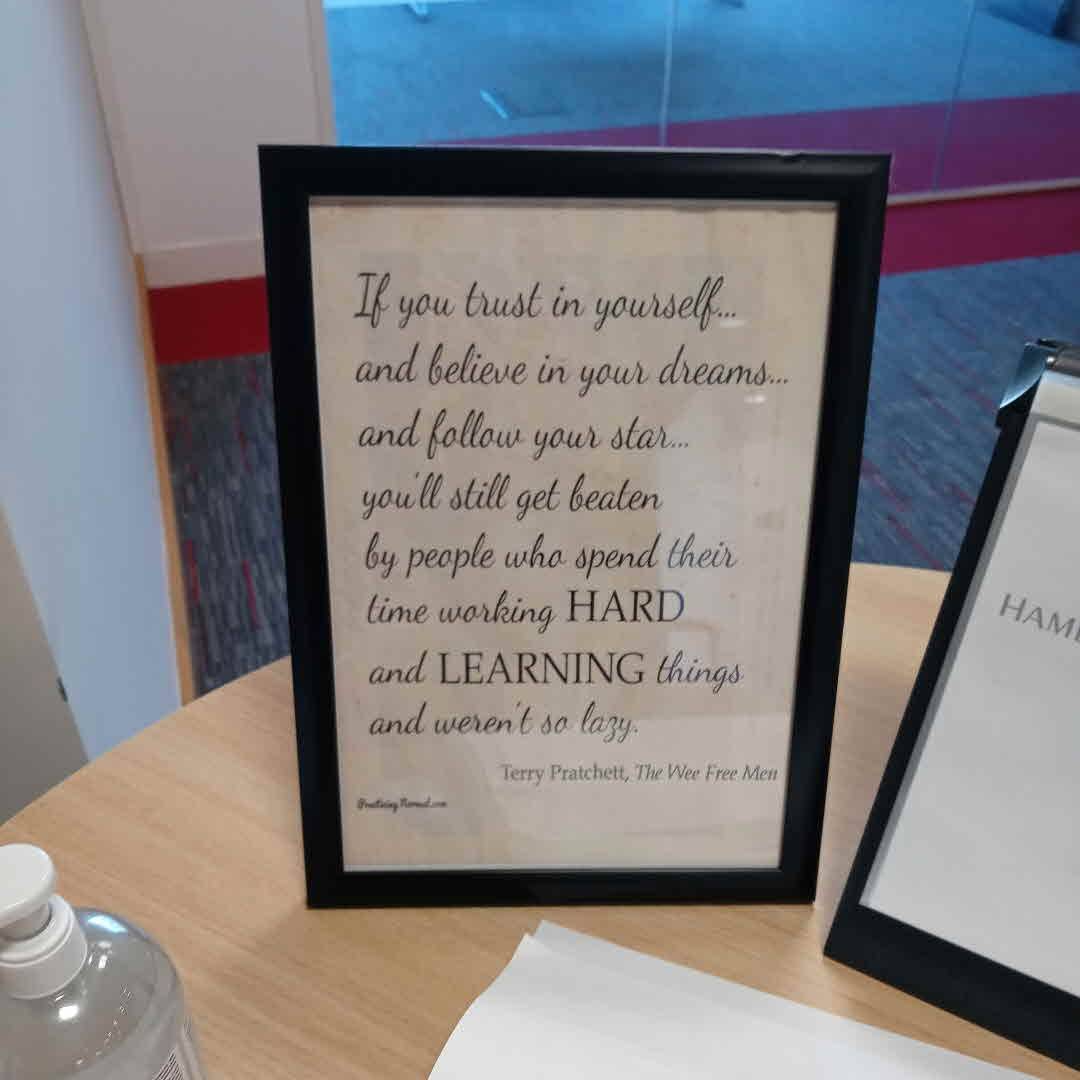 If you trust in yourself...
and believe in your dreams...
and follow your star...
you'll still get beaten
by people who spend their
time working HARD
and LEARNING things
and weren't so lazy.
Terry Pratchett, The Wee Free Men
PracticingNormal.com